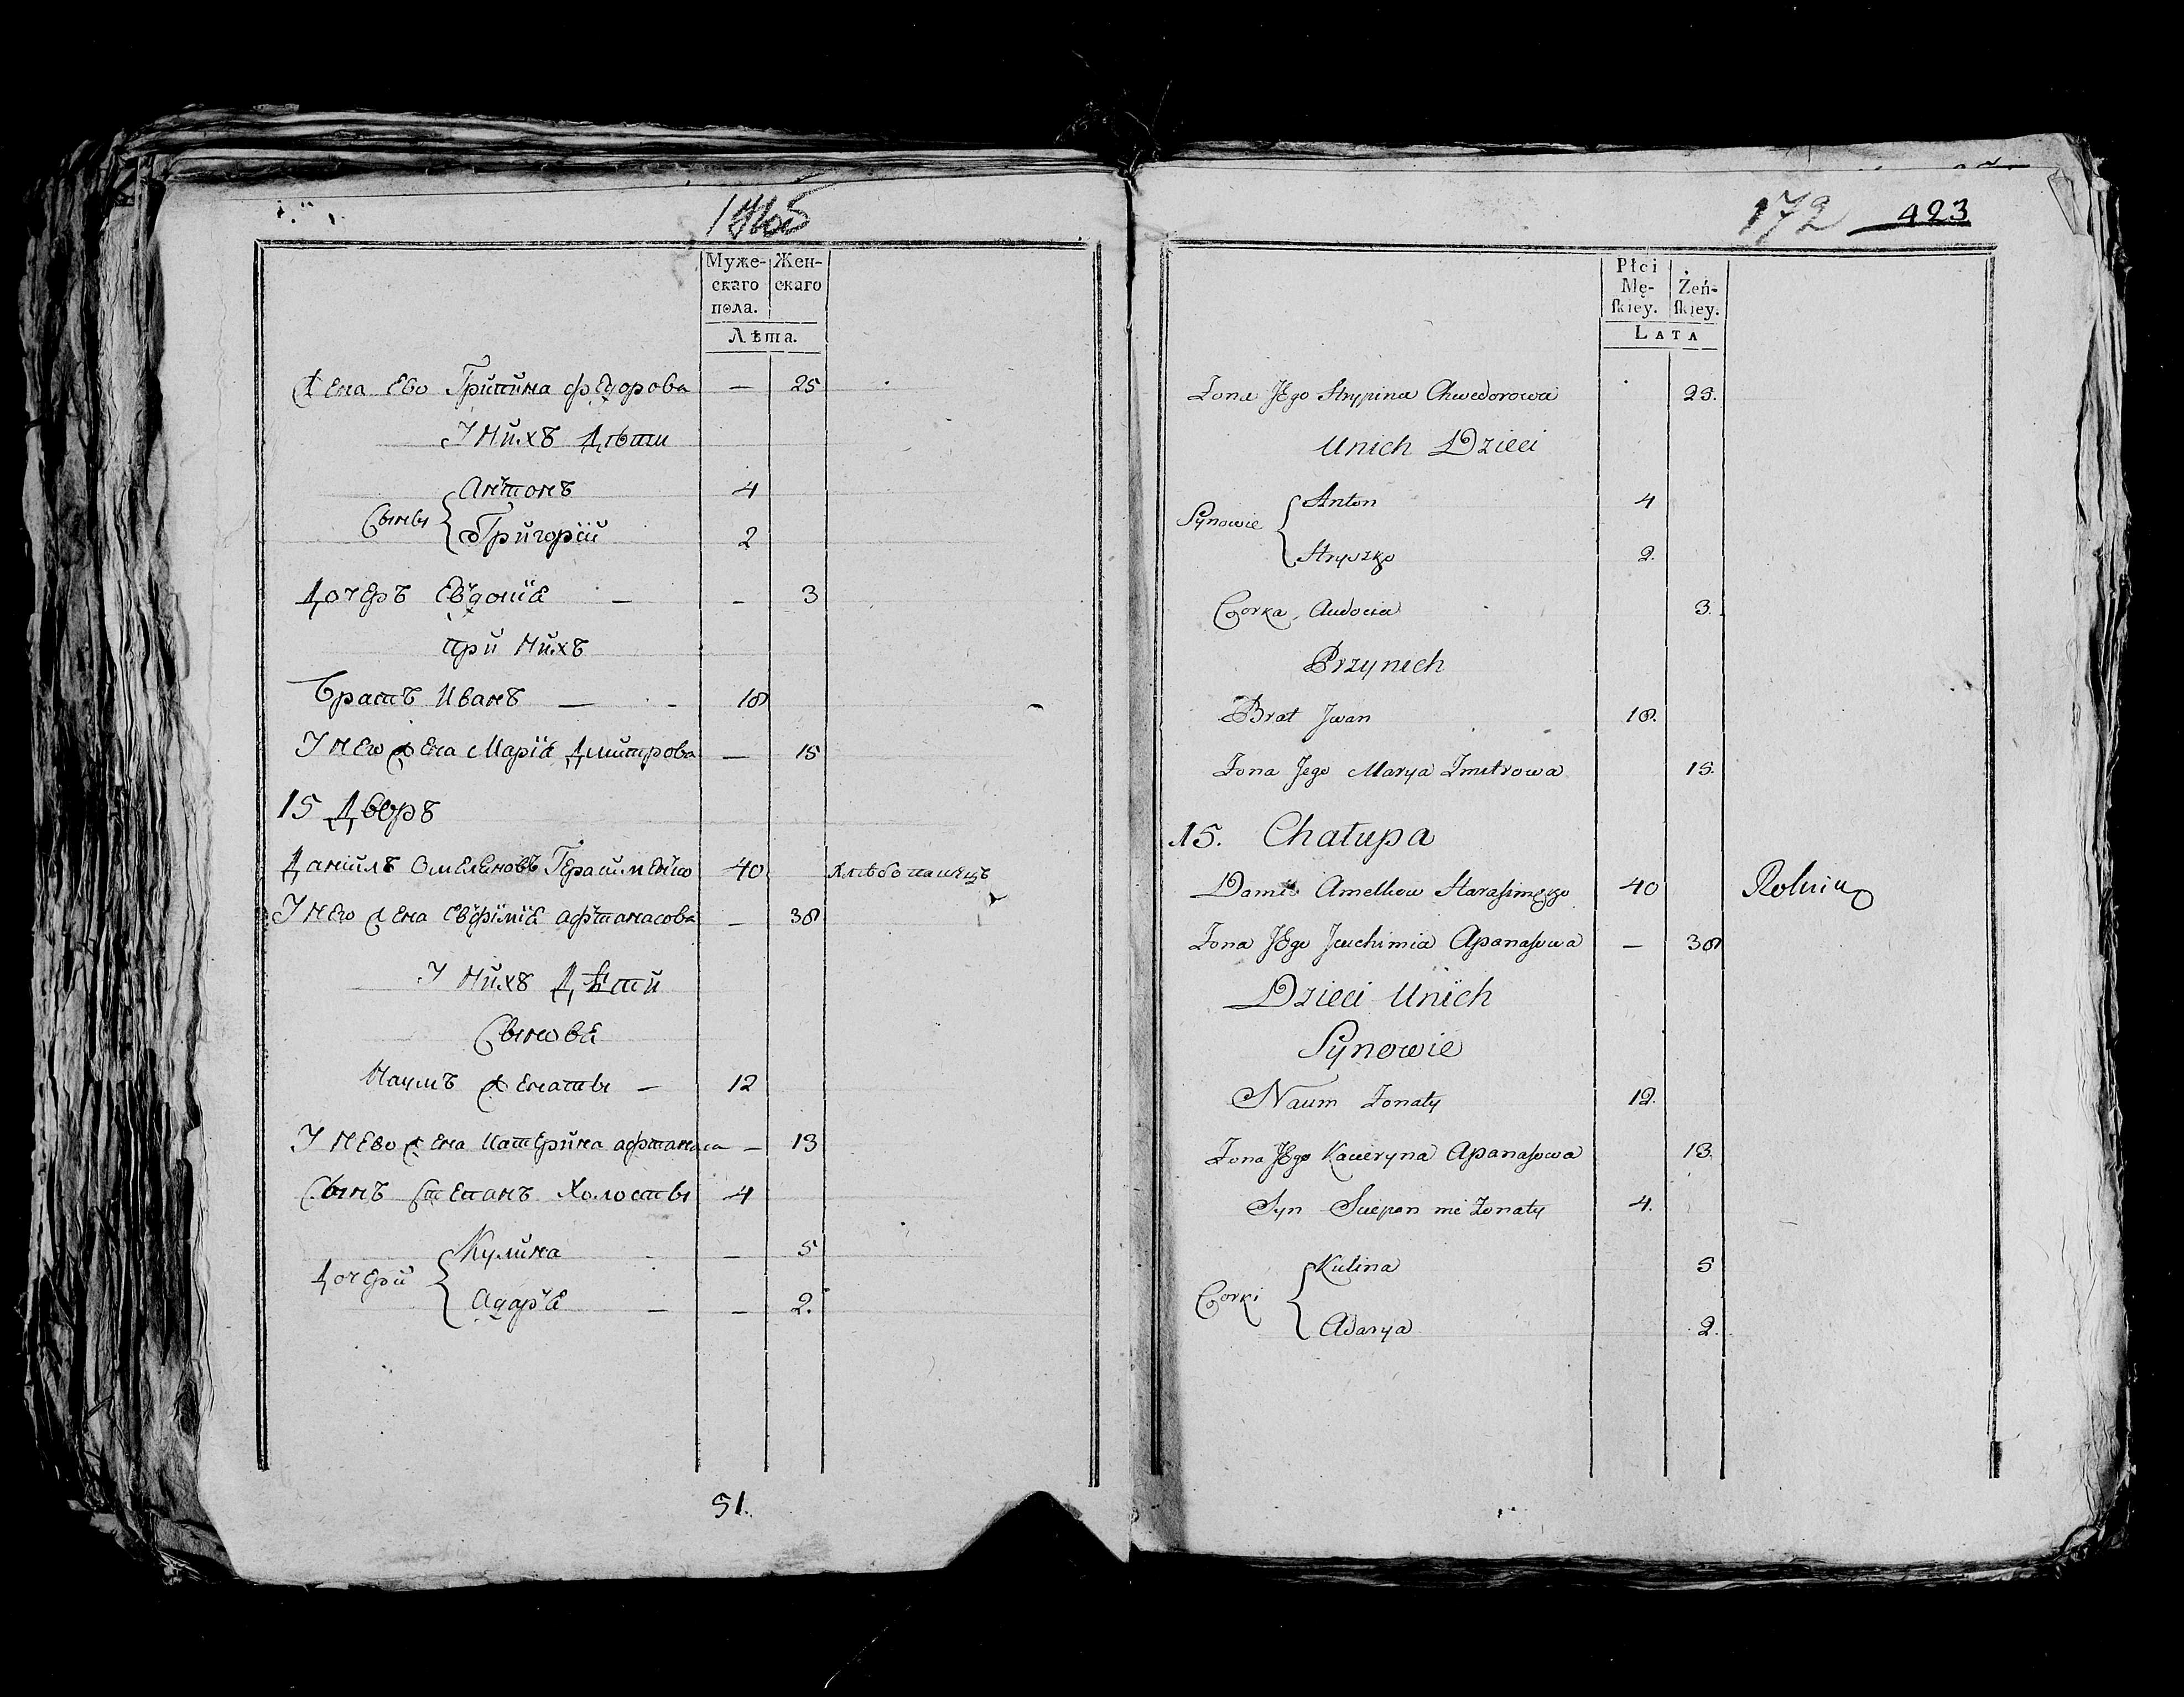 Муже-
скаго
пола.
Жен-
скаго
Лѣта.
Жена Ево Грипина Федорова — 25
У Нихъ Дѣти
Сыны
Антонъ 4
Григорій 2
Дочеръ Евдокія — — 3
при Нихъ
Братъ Иванъ — 18
У Него Жена Марія Дмитрова — 15
15 Дворъ
Даніилъ Омеляновъ Герасименко 40 Хлѣбопашецъ
У Него Жена Евфимія Афтанасова — 38
У Нихъ Дѣти
Сыновя
Наумъ Женаты — 12
У Нево Жена Катерина Афтанаса — 13
Сынъ Степанъ Холосты 4
Дочери
Кулина — 5
Адаря — — 2.
51.
172 423
Płci
Mę-
ſkiey.
Żeń-
ſkiey.
LATA
Zona JEgo Hrypina Chwedorowa 25.
Unich Dzieci
Synowie
Anton 4
Hryszko 2.
Corka Audocia 3.
Przynich
Brat Jwan 18.
Zona Jego Marya Dmitrowa 15.
15. Chałupa
Danił Amelkow Harasimęko 40 Rolnik
Zona JEgo Jwchimia Apanaſowa — 38
Dzieci Unich
Synowie
Naum Zonaty 12.
Zona JEgo Kaceryna Apanaſowa 13.
Syn Sciepan nie Zonaty 4.
Corki
Kulina 5
Adarya 2.